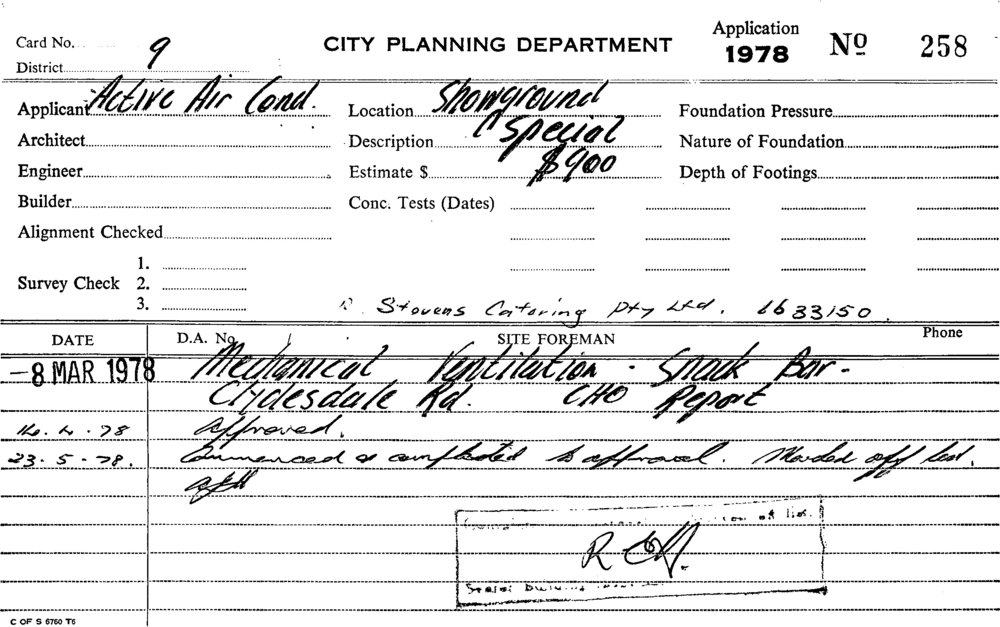 Card No. 9
District
CITY PLANNING DEPARTMENT
Application
1978
Nº 258
Applicant Active Air Cond.
Location Showground
Foundation Pressure
Architect
Description Special
Nature of Foundation
Engineer
Estimate $ $900
Depth of Footings
Builder
Conc. Tests (Dates)
Alignment Checked
Survey Check
1.
2.
3.
R. Stevens Catering Pty Ltd. 1633150.
DATE
D.A. No.
SITE FOREMAN
Phone
-8 MAR 1978 Mechanical Ventilation - Snack Bar -
Clydesdale Rd. CHO Report
14.4.78 Approved.
23.5.78. Commenced & completed to approval. Marked off list.
Senior Building
C OF S 6760 T6